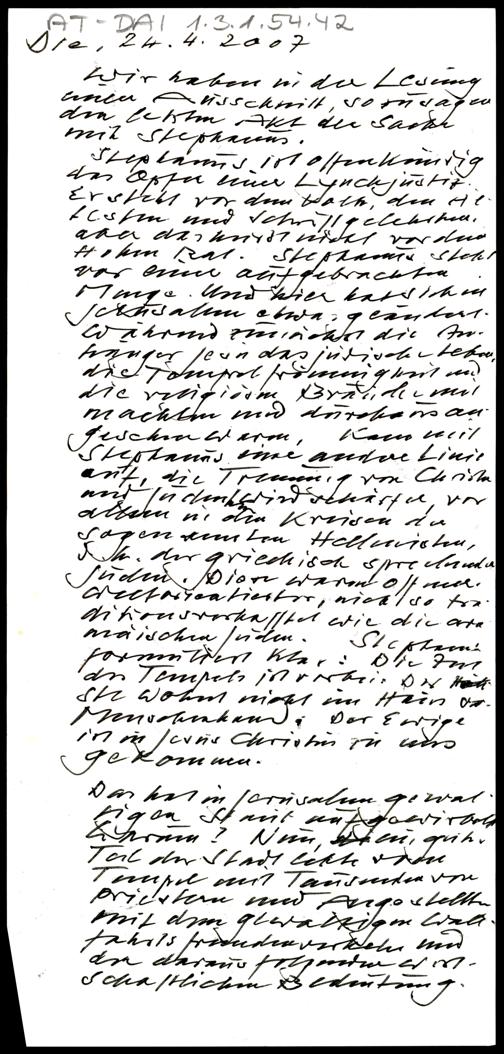 AT-DAI 1.3.1.54.42
Die, 24.4.2007
Wir haben in der Lesung
einen Ausschnitt, sozusagen
den letzten Akt der Sache
mit Stephanus.
Stephanus ist offenkündig
das Opfer einer Lynchjustiz.
Er steht vor dem Volk, den Äl-
testen und Schriftgelehrten,
aber das wird nicht vor dem
Hohen Rat. Stephanus steht
vor einer aufgebrachten
Menge. Und hier hat sich in
Jerusalem etwas geändert.
Während zunächst die An-
hänger Jesu das jüdische Leben,
die Tempelfrömmigkeit und
die religiösen Bräuche mit
machten und durchaus an-
gesehen waren, kam mit
Stephanus eine andre Linie
auf, die Trennung von Christen
und Juden wird schärfer, vor
allem in den Kreisen der
sogenannten Hellenisten,
d.h. der griechisch sprechenden
Juden. Diese waren offener,
weltorientierter, nicht so tra-
ditionsverhaftet wie die ara-
mäischen Juden. Stephanus
formuliert klar: Die Zeit
des Tempels ist vorbei. Der Höch
ste wohnt nicht im Haus von
Menschenhand. Der Ewige
ist in Jesus Christus zu uns
gekommen.
Das hat in Jerusalem gewal-
tigen Staub aufgewirbelt.
Warum? Nun, ein gut.
Teil der Stadt lebte vom
Tempel mit Tausenden von
Priestern und Angestellten
mit dem gewaltigen Wall-
fahrtsfremdenverkehr und
der daraus folgenden wirt-
schaftlichen Bedeutung.